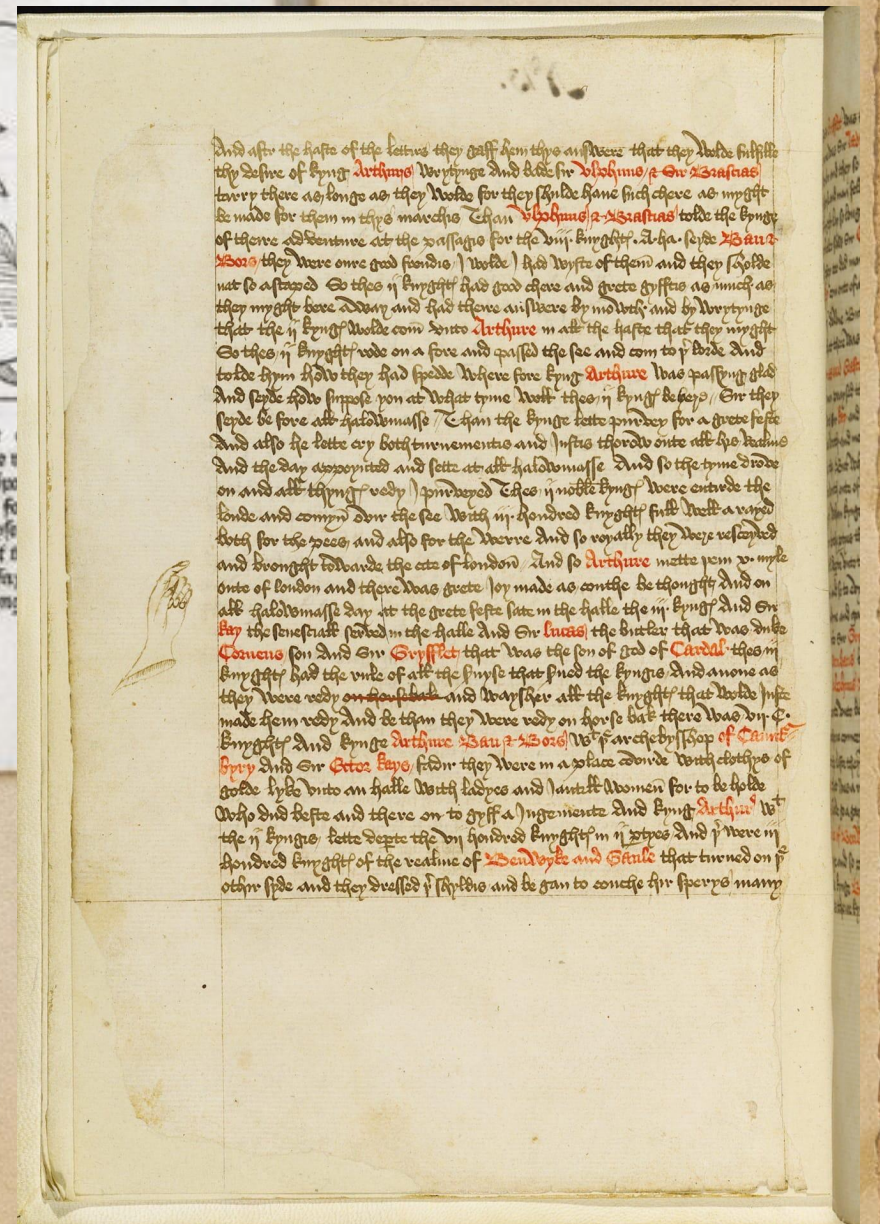 And aftir the haste of the lettirs they gaff hem thys answere that they wolde fulfille
thy desire of kyng Arthurs wrytynge And bade sir Vlphuns / & Sir Brascias
tarry there as longe as they wolde for they shulde haue such chere as myght
be made for them in thys marchis Than Vlphuns / & Brascias tolde the kynge
of theire adventure at the passagis for the viij · knyghtes · A · ha · seyde Ban &
Bors / they were oure good frendis / I wolde I had wyste of them and they scholde
nat so ascaped So thes ij knyghtes had good chere and grete gyfftis as much as
they myght bere away and had theire answere by mowth and by wrytynge
that the ij kynges wolde com vnto Arthure in all the haste that they myght
So thes · ij knyghtes rode on a fore and passed the see and com to þer lorde And
tolde hym how they had spedde where fore kyng Arthure was passyng glad
And seyde how suppose you at what tyme woll thes ij kynges be Sir they
seyde be fore all halowmasse / Than the kynge lette purvey for a grete feste
And also he lette cry both turnementis and Justis thorow oute all hys realmis
And the day appoynted and sette at all halowmasse And so the tyme drove
on and all thynges redy I purveyed Thes ij noble kynges were entirde the
londe and comyn ovir the see with iij · hondred knyghtes full well a rayed
both for the pees and also for the werre And so royally they were resceyved
and brought towarde the cete of london / And so Arthure mette hem x · myle
oute of london and there was grete Joy made as couthe be thought And on
all halowmasse day at the grete feste sate in the halle the iij · kynges And Sir
kay the senesciall served in the halle And Sir lucas the butler that was duke
Corneus son And Sir Gryfflet that was the son of god of Cardal thes iij
knyghtes had the rule of all the seruyse that serued the kyngis / And anone as
they were redy on horsebak and wayshen all the knyghtes that wolde Juste
made hem redy And be than they were redy on horse bak there was vij · C ·
knyghtes And kynge Arthure Ban & Bors wt þe archebysshop of Caunt=
byry And Sir Ector Kays / fadir they were in a place couirde with clothys of
golde lyke vnto an halle with ladyes and Jantill women for to be holde
who dud beste and there on to gyff a Jugemente And kyng Arthur wt
the ij kyngis lette departe the vij hondred knyghtes in ij partyes And þer were iij
hondred knyghtes of the realme of Benwyke and Gaule that turned on þe
othir syde and they dressed þer shyldis and be gan to couche hir sperys many